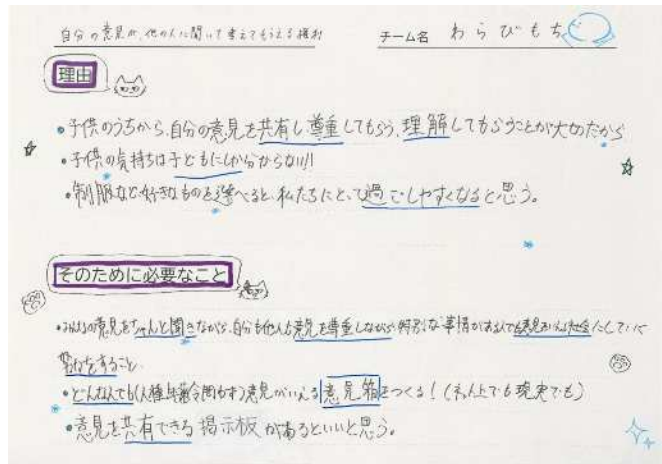 自分の意見が、他の人に聞いて考えてもらえる権利
チーム名 わらびもち
理由
・子供のうちから、自分の意見を共有し尊重してもらう、理解してもらうことが大切だから
・子供の気持ちは子どもにしか分からない!!
・制服など、好きなものを選べると、私たちにとって過ごしやすくなると思う。
そのために必要なこと
・みんなの意見をちゃんと聞きながら、自分も他人も意見を尊重しながら特別な事情がある人でも意見をいえる社会にしていく
をすること。
・どんな人でも(人種年齢問わず)意見がいえる意見箱をつくる!(ネット上でも現実でも)
・意見を共有できる掲示板があるといいと思う。